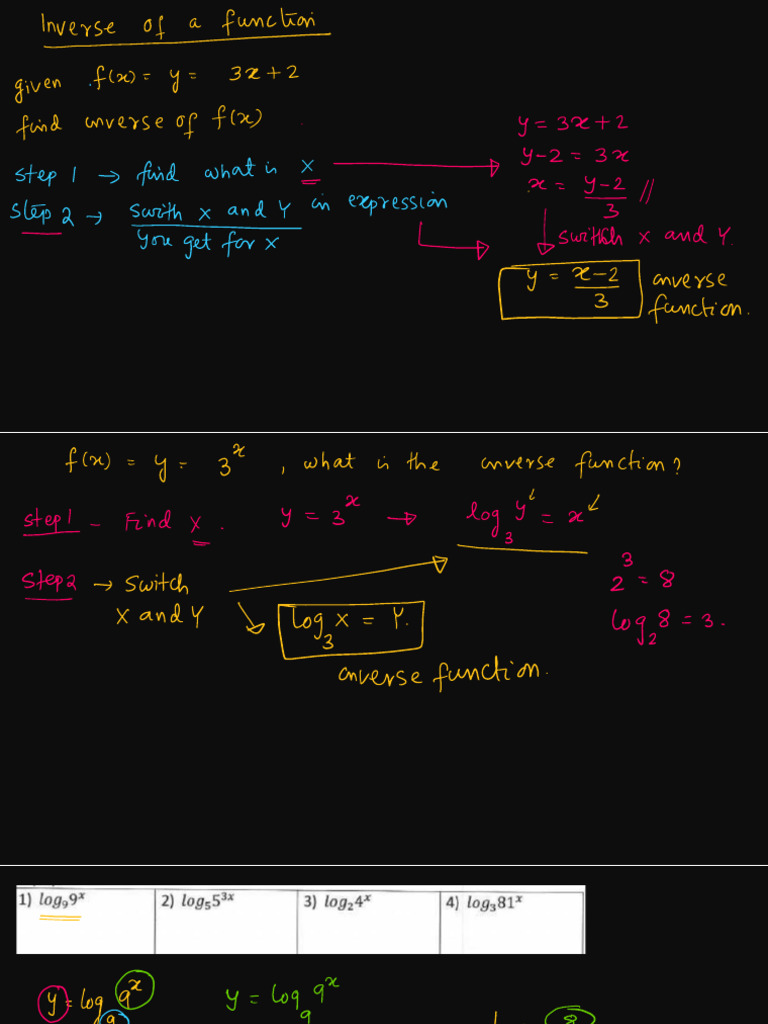 Inverse of a function
given f(x) = y = 3x+2
find inverse of f(x)
Step 1 → find what is X
Step 2 → swith X and Y in expression
you get for X
y = 3x+2
y-2 = 3x
x = y-2/3 //
switch X and Y.
y = x-2/3 inverse function.
f(x) = y = 3^x , what is the inverse function?
Step1 - Find X. y = 3^x → log_3 y = x
Step2 → Switch
X and Y
log_3 X = Y.
inverse function.
2^3 = 8
log_2 8 = 3.
1) log₉9ˣ 2) log₅5³ˣ 3) log₂4ˣ 4) log₃81ˣ
y = log_9 9^x y = log_9 9^x